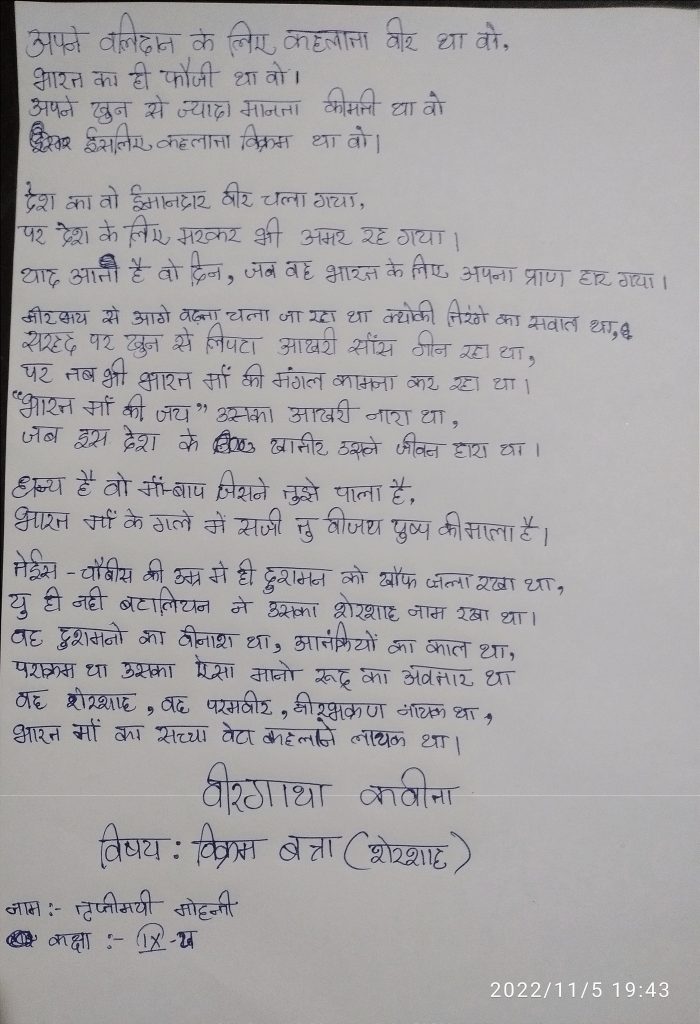 अपने वलिदान के लिए कहलाता वीर था वो,
भारत का ही फौजी था वो।
अपने खुन से ज्यादा मानता कीमती था वो
इसलिए कहलाता विक्रम था वो।
देश का वो ईमानदार वीर चला गया,
पर देश के लिए मरकर भी अमर रह गया।
याद आता है वो दिन, जब वह भारत के लिए अपना प्राण हार गया।
नीरभय से आगे वढ़ता चला जा रहा था क्योकी तिरंगे का सवाल था,
सरहद पर खुन से लिपटा आखरी साँस गीन रहा था,
पर तब भी भारत माँ की मंगल कामना कर रहा था।
"भारत माँ की जय" उसका आखरी नारा था,
जब इस देश के खातीर उसने जीवन हारा था।
धन्य है वो माँ-बाप जिसने तुझे पाला है,
भारत माँ के गले में सजी तु वीजय पुष्प की माला है।
तेईस - चौबीस की उम्र मे ही दुशमन को खौफ जला रखा था,
यु ही नही बटालियन ने उसका शेरशाह नाम रखा था।
वह दुशमनो का वीनाश था, आतंकियों का काल था,
पराक्रम था उसका ऐसा मानो रूद्र का अवतार था
वह शेरशाह, वह परमवीर, वीरभक्रण नायक था,
भारत माँ का सच्चा वेटा कहलाने लायक था।
वीरगाथा कवीता
विषय: विक्रम बत्रा (शेरशाह)
नाम :- तृप्तीमयी मोहन्ती
कक्षा :- IX-ख
2022/11/5 19:43